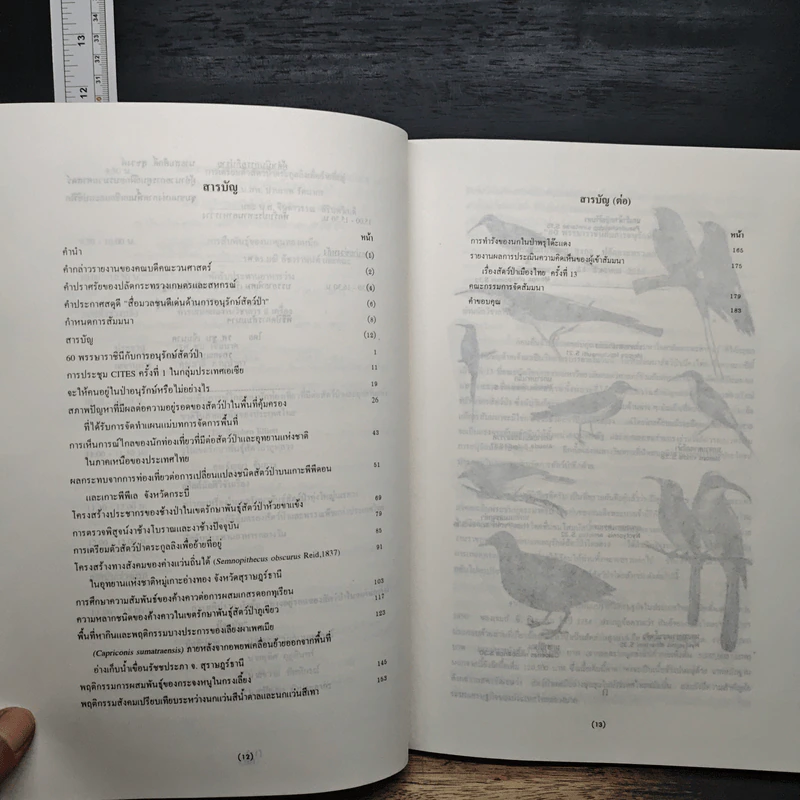 สารบัญ
หน้า
คำนำ (1)
คำกล่าวรายงานของคณบดีคณะวนศาสตร์ (2)
คำปราศรัยของปลัดกระทรวงเกษตรและสหกรณ์ (4)
คำประกาศสดุดี "สื่อมวลชนดีเด่นด้านการอนุรักษ์สัตว์ป่า" (6)
กำหนดการสัมมนา (8)
สารบัญ (12)
60 พรรษาราชินีกับการอนุรักษ์สัตว์ป่า 1
การประชุม CITES ครั้งที่ 1 ในกลุ่มประเทศเอเซีย 11
จะให้คนอยู่ในป่าอนุรักษ์หรือไม่อย่างไร 19
สภาพปัญหาที่มีผลต่อความอยู่รอดของสัตว์ป่าในพื้นที่คุ้มครอง 26
ที่ได้รับการจัดทำแผนแม่บทการจัดการพื้นที่
การเห็นการณ์ไกลของนักท่องเที่ยวที่มีต่อสัตว์ป่าและอุทยานแห่งชาติ 43
ในภาคเหนือของประเทศไทย
ผลกระทบจากการท่องเที่ยวต่อการเปลี่ยนแปลงชนิดสัตว์ป่าบนเกาะพีพีดอน 51
และเกาะพีพีเล จังหวัดกระบี่
โครงสร้างประชากรของช้างป่าในเขตรักษาพันธุ์สัตว์ป่าห้วยขาแข้ง 69
การตรวจพิสูจน์งาช้างโบราณและงาช้างปัจจุบัน 79
การเตรียมตัวสัตว์ป่าตระกูลลิงเพื่อย้ายที่อยู่ 85
โครงสร้างทางสังคมของค่างแว่นถิ่นใต้ (Semnopithecus obscurus Reid,1837) 91
ในอุทยานแห่งชาติหมู่เกาะอ่างทอง จังหวัดสุราษฎร์ธานี
การศึกษาความสัมพันธ์ของค้างคาวต่อการผสมเกสรดอกทุเรียน 103
ความหลากชนิดของค้างคาวในเขตรักษาพันธุ์สัตว์ป่าภูเขียว 117
พื้นที่หากินและพฤติกรรมบางประการของเลียงผาเพศเมีย 123
(Capriconis sumatraensis) ภายหลังจากอพยพเคลื่อนย้ายออกจากพื้นที่
อ่างเก็บน้ำเขื่อนรัชชประภา จ. สุราษฎร์ธานี
พฤติกรรมการผสมพันธุ์ของกระจงหนูในกรงเลี้ยง 145
พฤติกรรมสังคมเปรียบเทียบระหว่างนกแว่นสีน้ำตาลและนกแว่นสีเทา 153
(12)
สารบัญ (ต่อ)
หน้า
การทำรังของนกในป่าพรุโต๊ะแดง 165
รายงานผลการประเมินความคิดเห็นของผู้เข้าสัมมนา 175
เรื่องสัตว์ป่าเมืองไทย ครั้งที่ 13
คณะกรรมการจัดสัมมนา 179
คำขอบคุณ 183
(13)